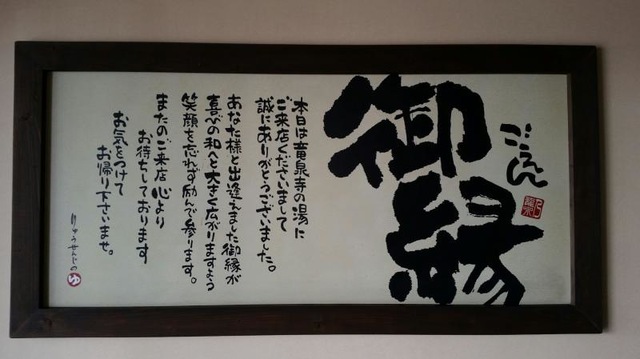 ごえん
御縁
本日は竜泉寺の湯に
ご来店くださいまして
誠にありがとうございました。
あなた様と出逢えました御縁が
喜びの和へと大きく広がりますよう
笑顔を忘れず励んで参ります。
またのご来店心より
お待ちしております
お気をつけて
お帰り下さいませ。
りゅうせんじの
ゆ